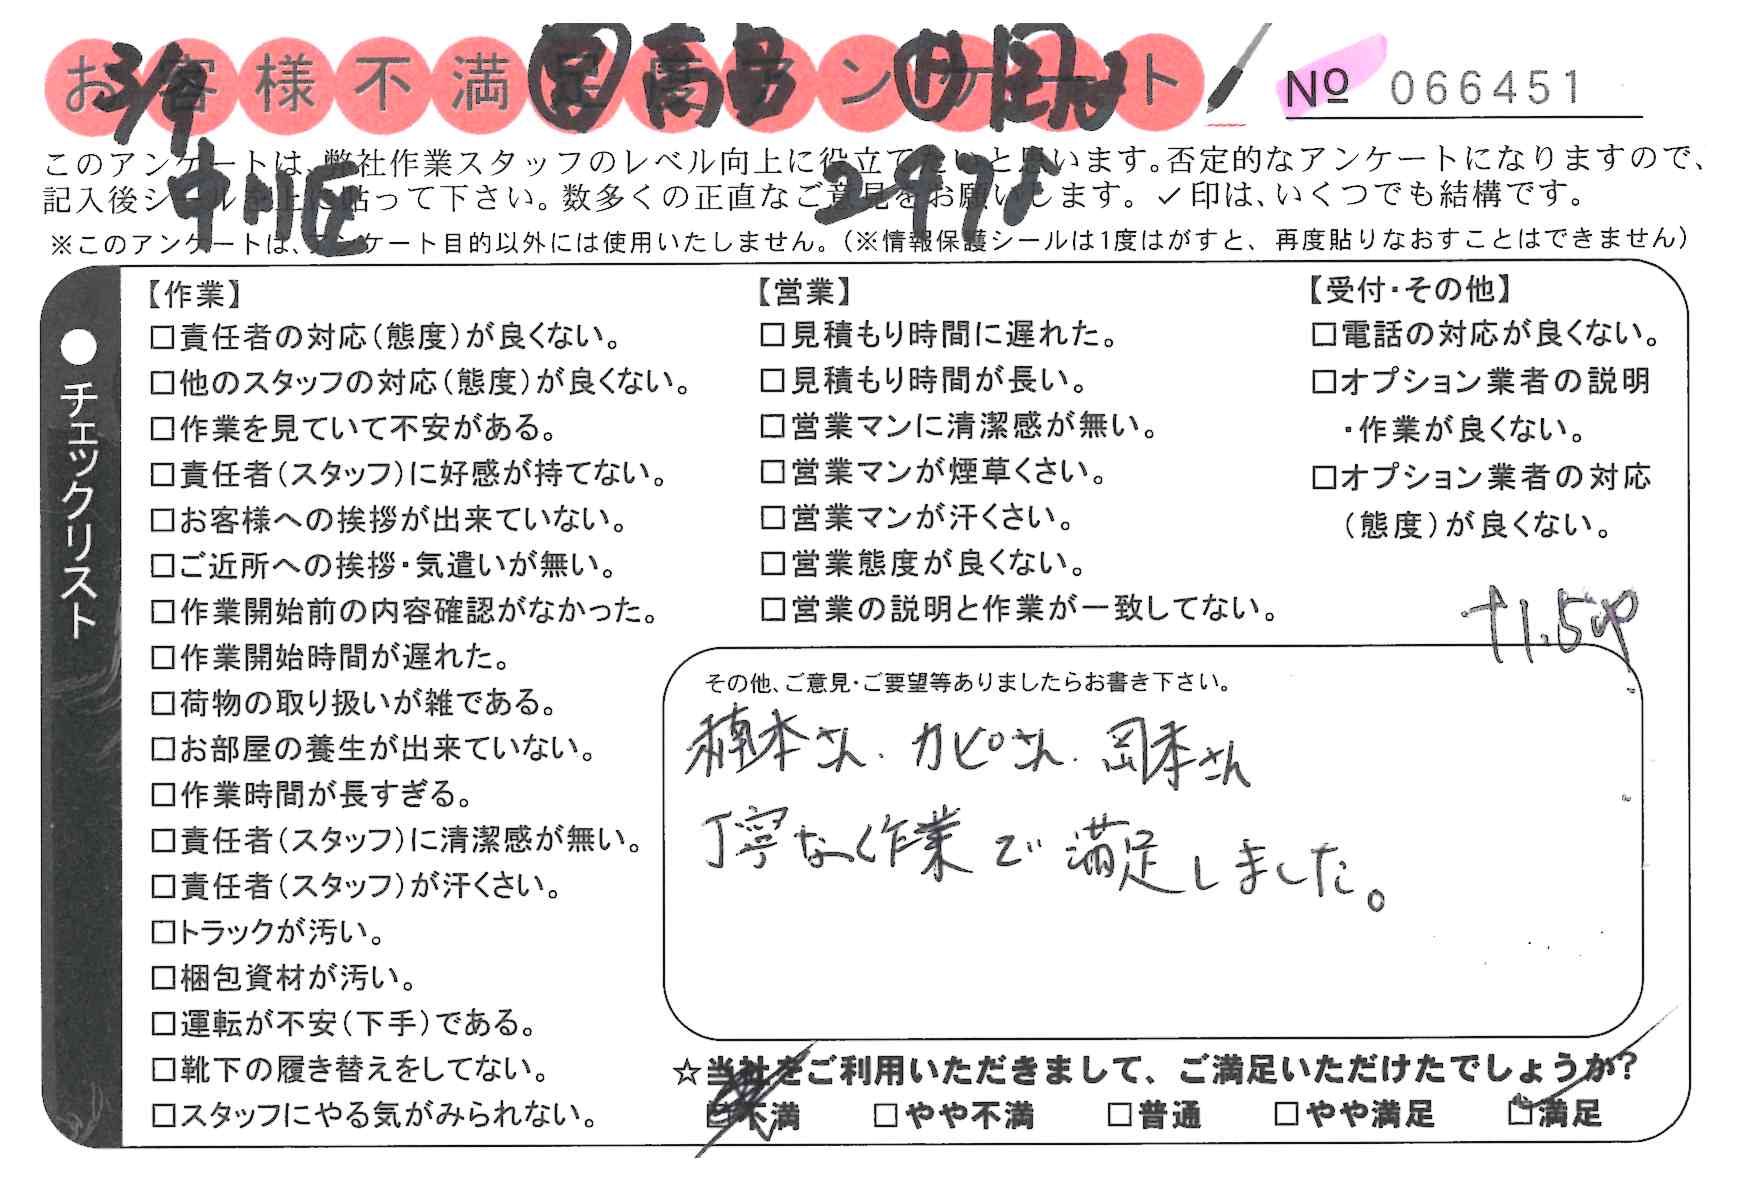 お客様不満足度アンケート
No 066451
3/9
このアンケートは、弊社作業スタッフのレベル向上に役立てたいと思います。否定的なアンケートになりますので、
記入後シールを上に貼って下さい。数多くの正直なご意見をお願いします。✓印は、いくつでも結構です。
※このアンケートは、アンケート目的以外には使用いたしません。(※情報保護シールは1度はがすと、再度貼りなおすことはできません)
●チェックリスト
【作業】
□責任者の対応(態度)が良くない。
□他のスタッフの対応(態度)が良くない。
□作業を見ていて不安がある。
□責任者(スタッフ)に好感が持てない。
□お客様への挨拶が出来ていない。
□ご近所への挨拶・気遣いが無い。
□作業開始前の内容確認がなかった。
□作業開始時間が遅れた。
□荷物の取り扱いが雑である。
□お部屋の養生が出来ていない。
□作業時間が長すぎる。
□責任者(スタッフ)に清潔感が無い。
□責任者(スタッフ)が汗くさい。
□トラックが汚い。
□梱包資材が汚い。
□運転が不安(下手)である。
□靴下の履き替えをしてない。
□スタッフにやる気がみられない。
【営業】
□見積もり時間に遅れた。
□見積もり時間が長い。
□営業マンに清潔感が無い。
□営業マンが煙草くさい。
□営業マンが汗くさい。
□営業態度が良くない。
□営業の説明と作業が一致してない。
【受付・その他】
□電話の対応が良くない。
□オプション業者の説明
・作業が良くない。
□オプション業者の対応
(態度)が良くない。
+1.5P
その他、ご意見・ご要望等ありましたらお書き下さい。
楠本さん.カピさん.岡本さん
丁寧な作業で満足しました。
☆当社をご利用いただきまして、ご満足いただけたでしょうか?
□不満 □やや不満 □普通 □やや満足 □満足